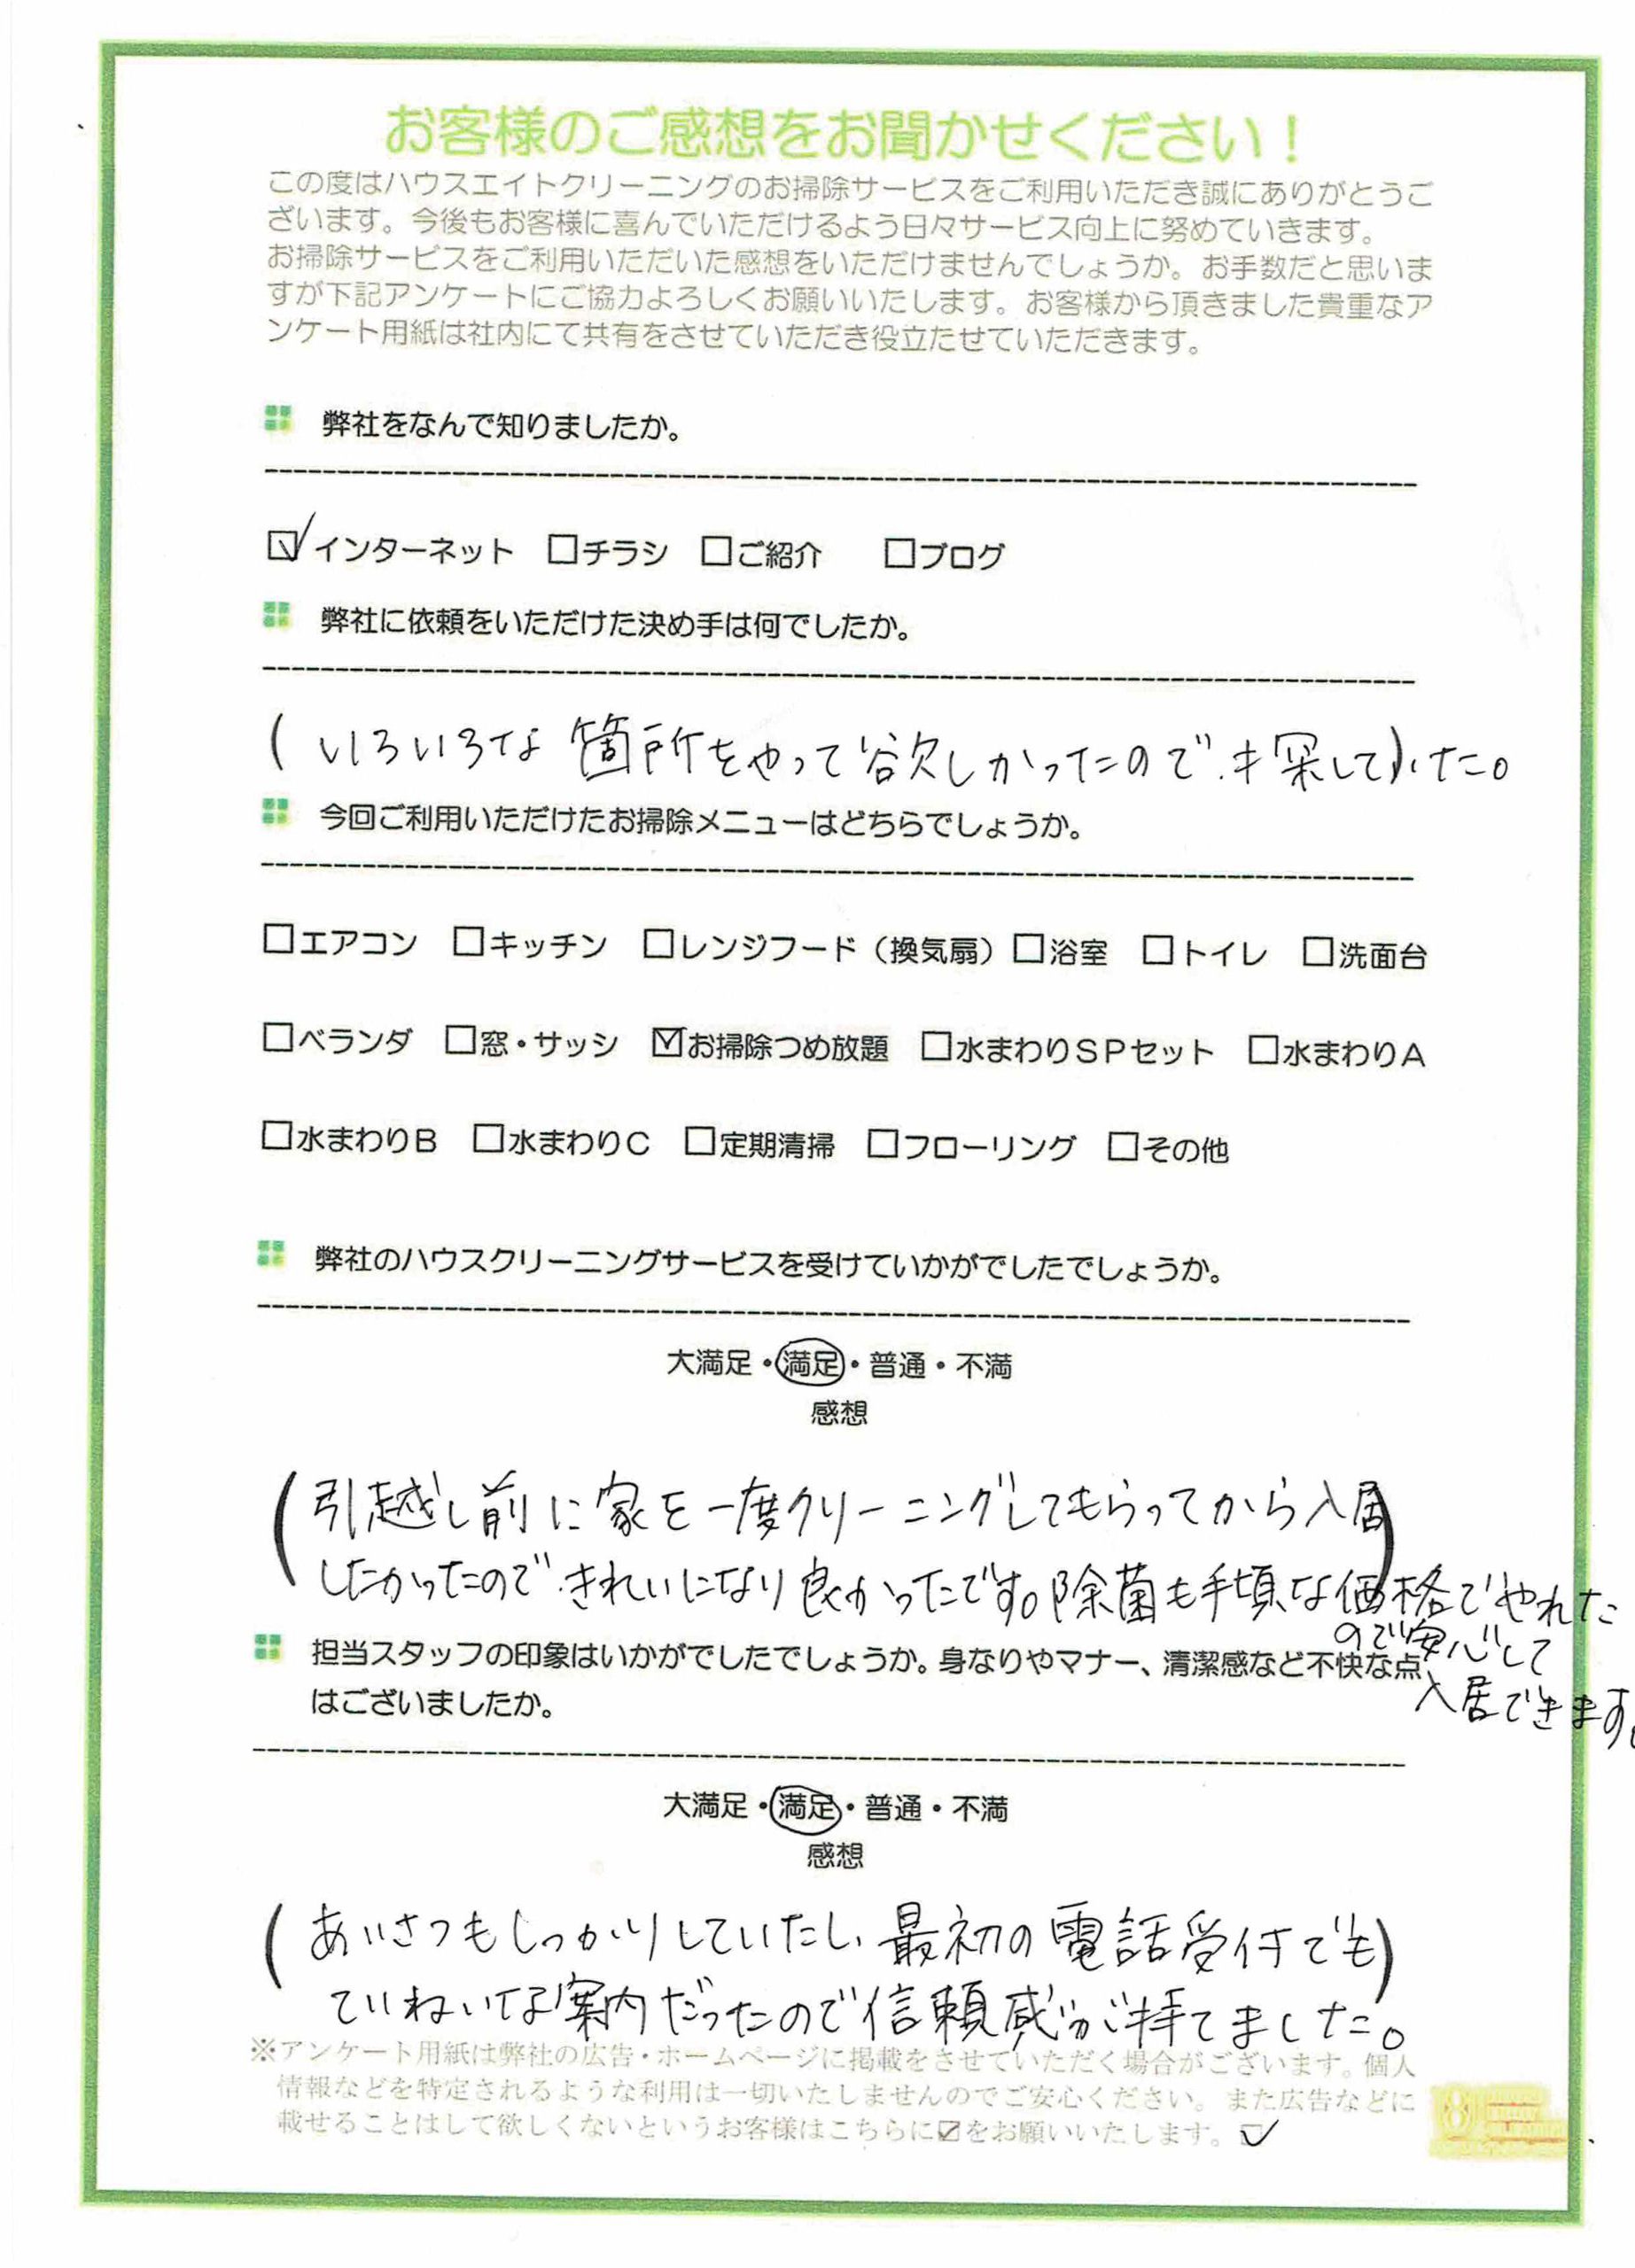 お客様のご感想をお聞かせください！
この度はハウスエイトクリーニングのお掃除サービスをご利用いただき誠にありがとうご
ざいます。今後もお客様に喜んでいただけるよう日々サービス向上に努めていきます。
お掃除サービスをご利用いただいた感想をいただけませんでしょうか。お手数だと思いま
すが下記アンケートにご協力よろしくお願いいたします。お客様から頂きました貴重なア
ンケート用紙は社内にて共有をさせていただき役立たせていただきます。
弊社をなんで知りましたか。
☑インターネット □チラシ □ご紹介 □ブログ
弊社に依頼をいただけた決め手は何でしたか。
(いろいろな箇所をやって欲しかったので、探していた。
今回ご利用いただけたお掃除メニューはどちらでしょうか。
□エアコン □キッチン □レンジフード（換気扇）□浴室 □トイレ □洗面台
□ベランダ □窓・サッシ ☑お掃除つめ放題 □水まわりＳＰセット □水まわりＡ
□水まわりＢ □水まわりＣ □定期清掃 □フローリング □その他
弊社のハウスクリーニングサービスを受けていかがでしたでしょうか。
大満足・満足・普通・不満
感想
(引越し前に家を一度クリーニングしてもらってから入居)
したかったので、きれいになり良かったです。除菌も手頃な価格でやれた
ので安心して
入居できます。
担当スタッフの印象はいかがでしたでしょうか。身なりやマナー、清潔感など不快な点
はございましたか。
大満足・満足・普通・不満
感想
(あいさつもしっかりしていたし、最初の電話受付でも)
ていねいな案内だったので信頼感が持てました。
※アンケート用紙は弊社の広告・ホームページに掲載をさせていただく場合がございます。個人
情報などを特定されるような利用は一切いたしませんのでご安心ください。また広告などに
載せることはして欲しくないというお客様はこちらに☑をお願いいたします。☑